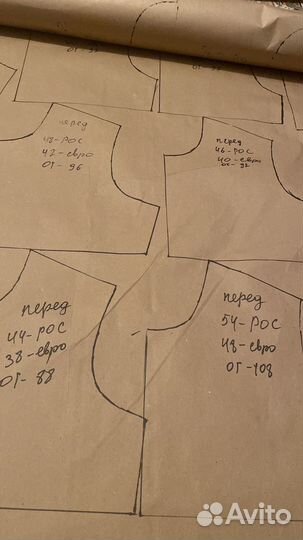 ОГ-92
перед
48-РОС
42-евро
ОГ-96
перед
46-РОС
40-евро
ОГ-92
перед
44-РОС
38-евро
ОГ-88
перед
54-РОС
48-евро
ОГ-108
Avito